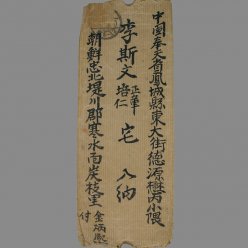 中国奉天省鳳城縣東大街德源樾內小隈
李斯文 正華 培仁 宅 入納
朝鮮忠北堤川郡寒水面炭枝里
金炳熙 付